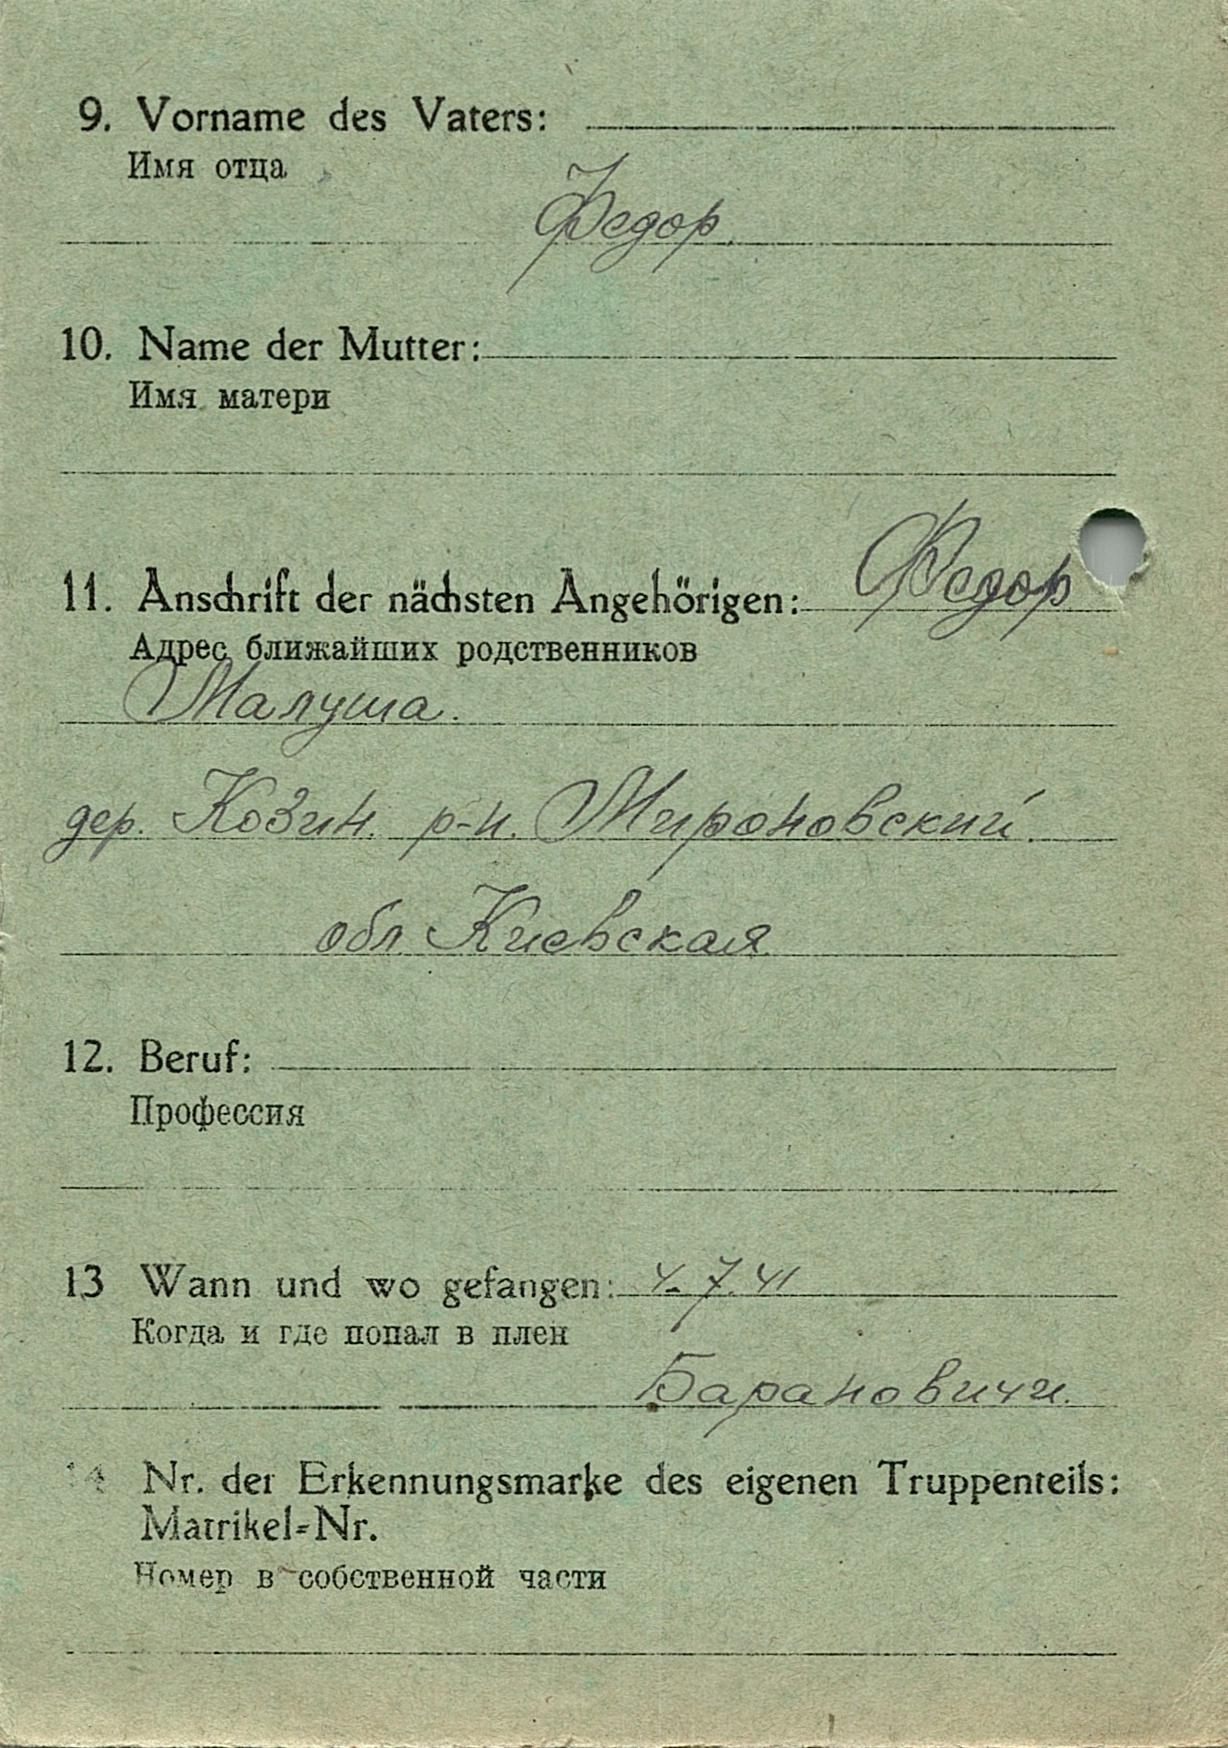 9. Vorname des Vaters:
Имя отца
Федор
10. Name der Mutter:
Имя матери
11. Anschrift der nächsten Angehörigen: Федор
Адрес ближайших родственников
Малуша.
дер. Козин. р-н. Мироновский.
обл. Киевская.
12. Beruf:
Профессия
13 Wann und wo gefangen: 4.7.41
Когда и где попал в плен
Барановичи.
14 Nr. der Erkennungsmarke des eigenen Truppenteils:
Matrikel-Nr.
Номер в собственной части